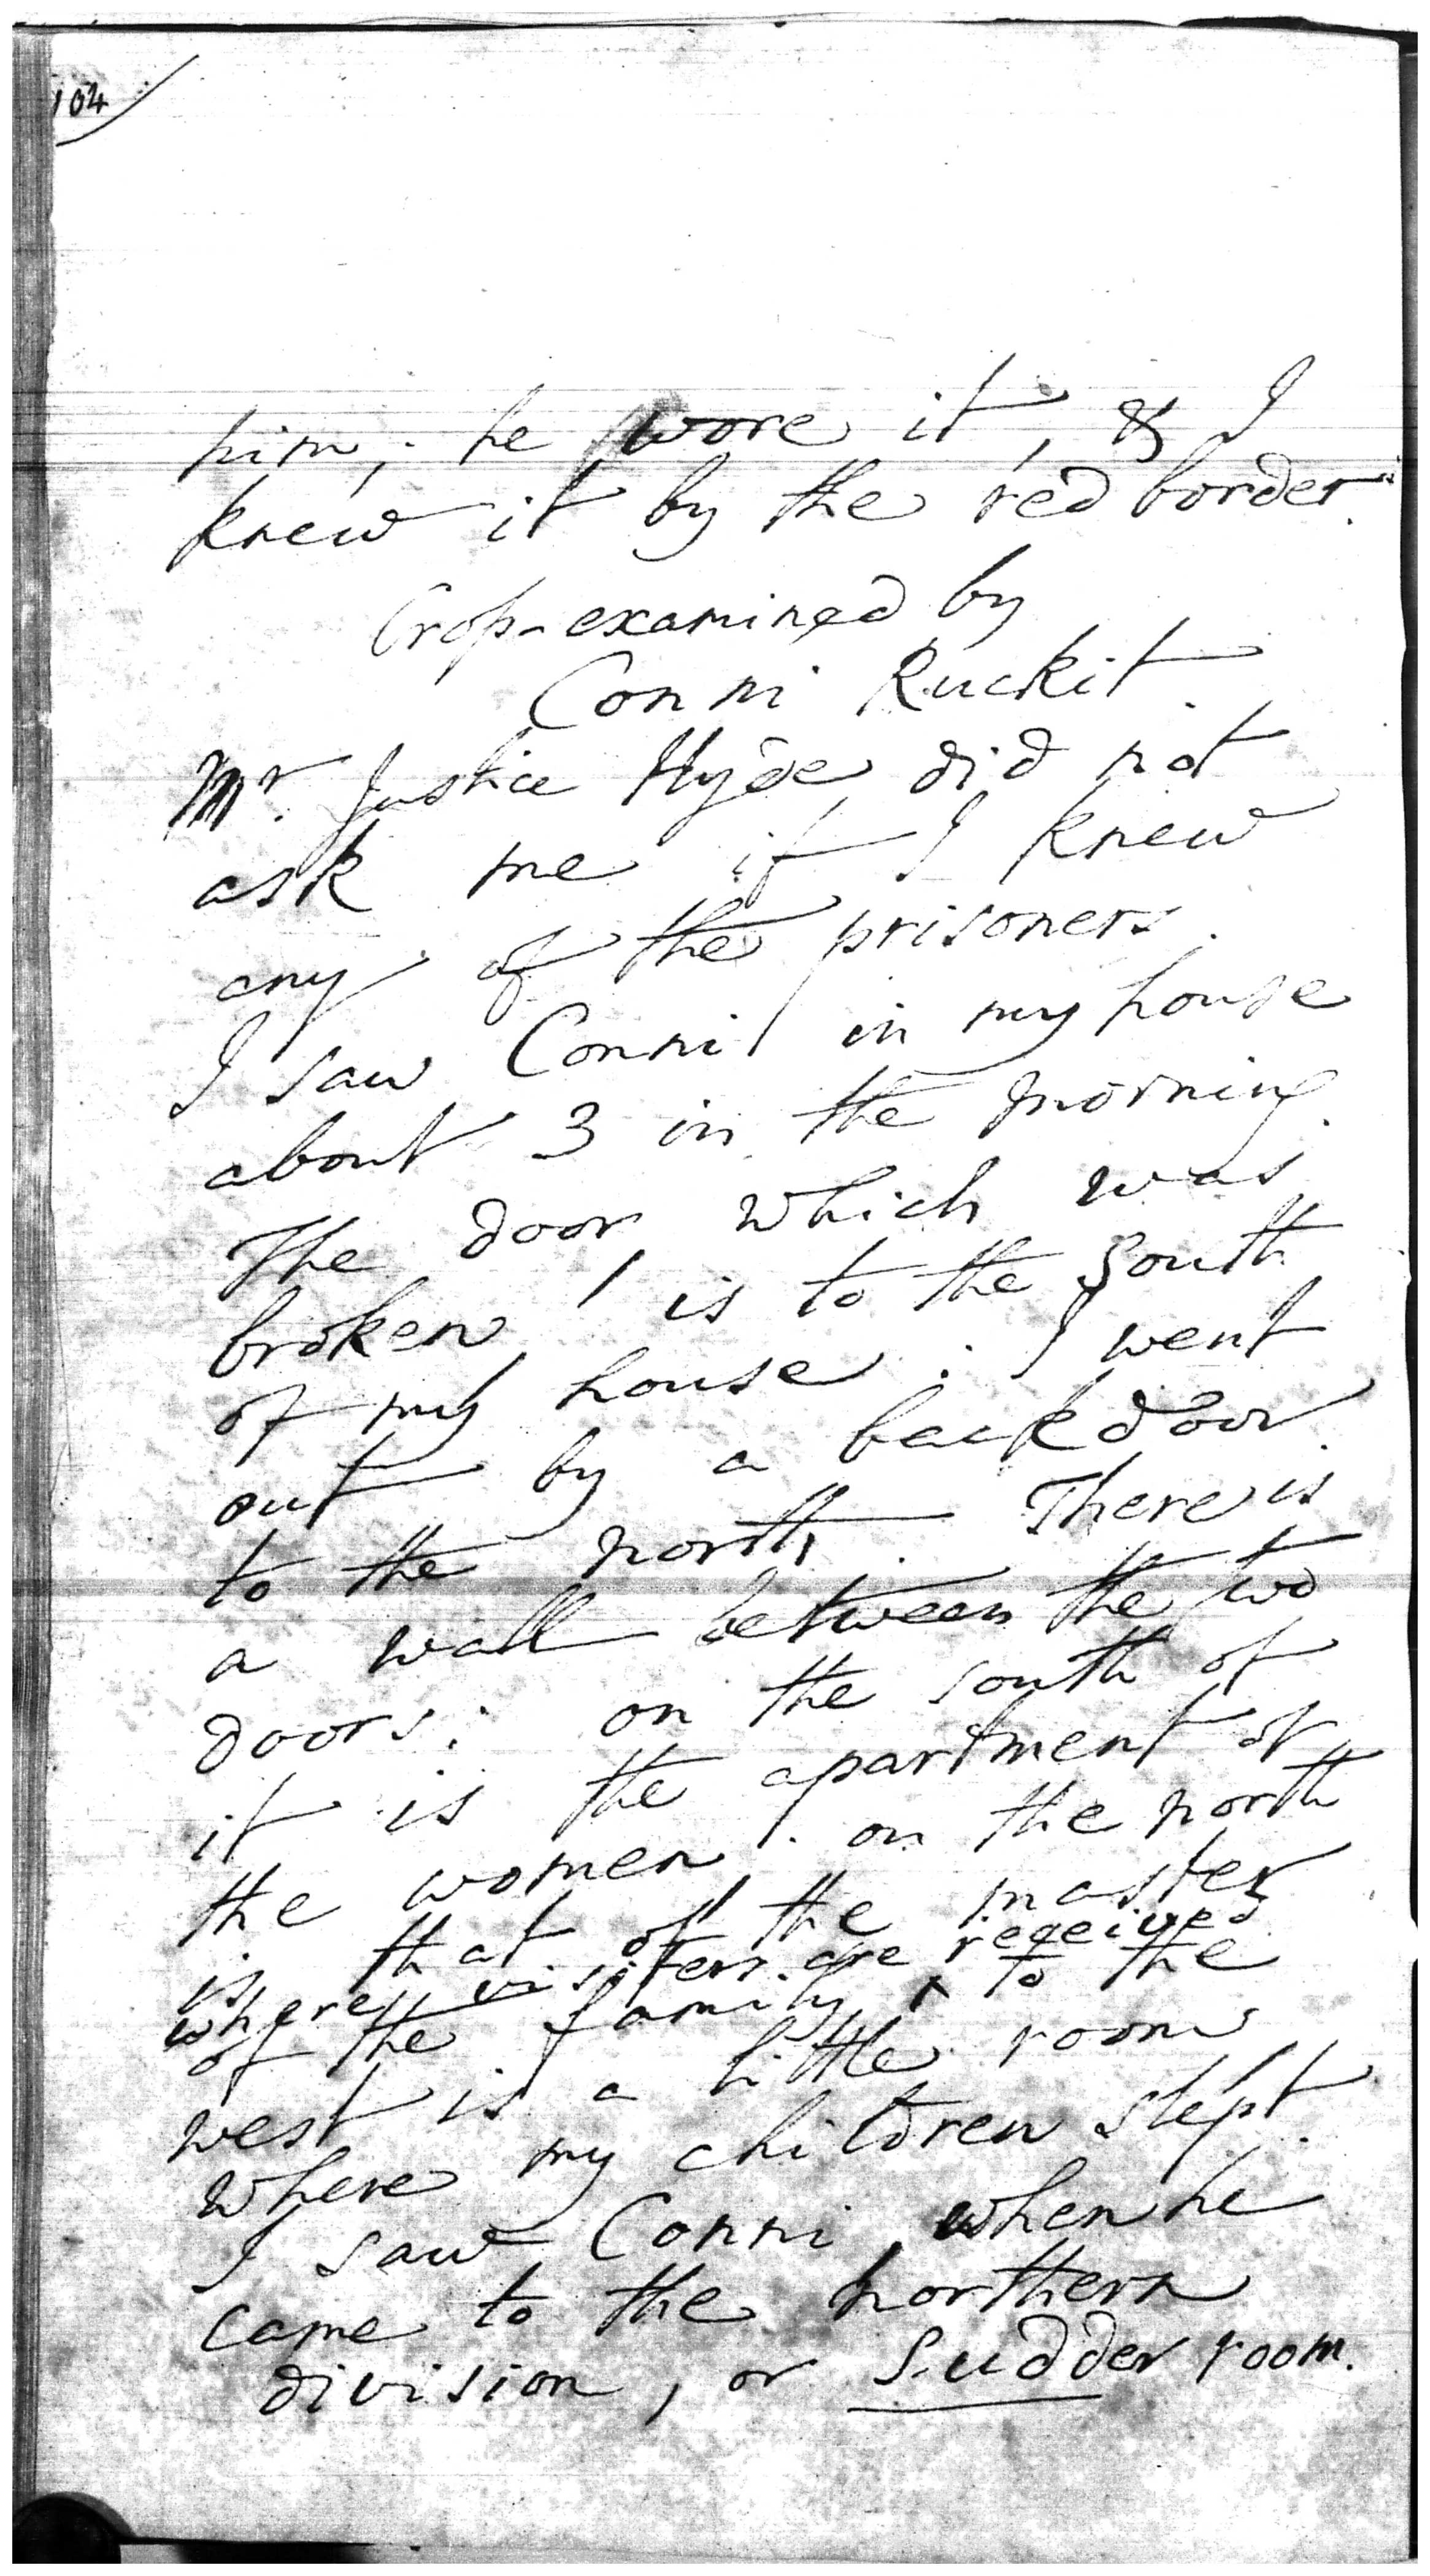 104
him; he wore it, & I
knew it by the red border.
Cross-examined by
Conni Ruckit.
Mr. Justice Hyde did not
ask me if I knew
any of the prisoners.
I saw Conni in my house
about 3 in the morning.
The door, which was
broken, is to the South
of my house: I went
out by a back door
to the north. There is
a wall between the two
doors: on the south of
it is the apartment of
the women: on the north
is that of the master
where visiters are received
of the family ‸ to the
west is a little room
where my children slept.
I saw Conni, when he
came to the northern
division, or Sudder room.